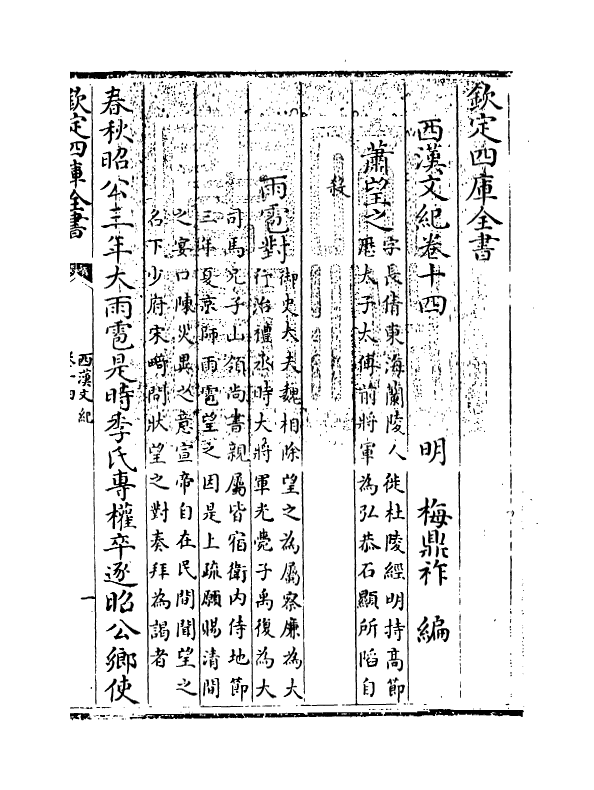 欽定四庫全書
西漢文紀卷十四
明 梅鼎祚 編
蕭望之
字長倩東海蘭陵人徙杜陵經明持高節
歷太子太傅前將軍為弘恭石顯所陷自
殺
雨雹對
御史大夫魏相除望之為屬察廉為大
行治禮丞時大將軍光薨子禹復為大
司馬兄子山領尚書親屬皆宿衛内侍地節
三年夏京師雨雹望之因是上疏願賜清閒
之宴口陳災異之意宣帝自在民間聞望之
名下少府宋畸問狀望之對奏拜為謁者
春秋昭公三年大雨雹是時季氏專權卒逐昭公鄉使
欽定四庫全書
西漢文紀
卷十四
一